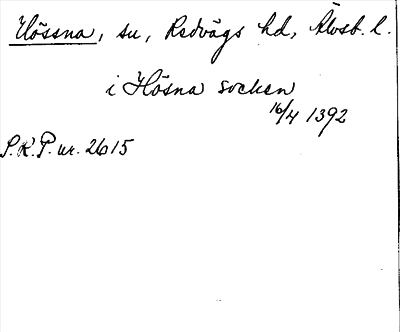 Hössna, sn, Redvägs hd, Älvsb. l.
i Hösna socken
16/4 1392
P.R.P. nr. 2615